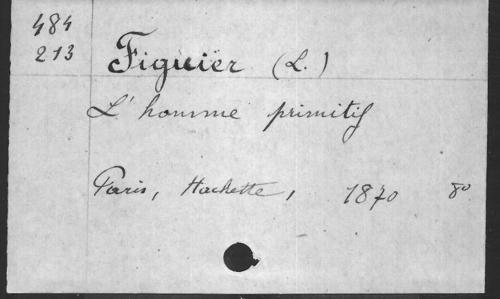 484
213
Figuier (L.)
L'homme primitif
Paris, Hachette, 1870 8º